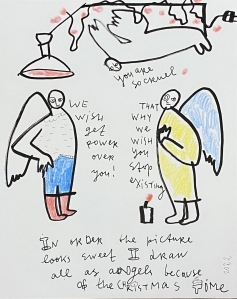 you are
so cruel
WE
wish
get
power
over
you!
THAT
WHY
we
WISH
you
stop
existing
IN ORDER the picture
looks sweet I draw
all as angels because
of the CHRISTMAS time
2022